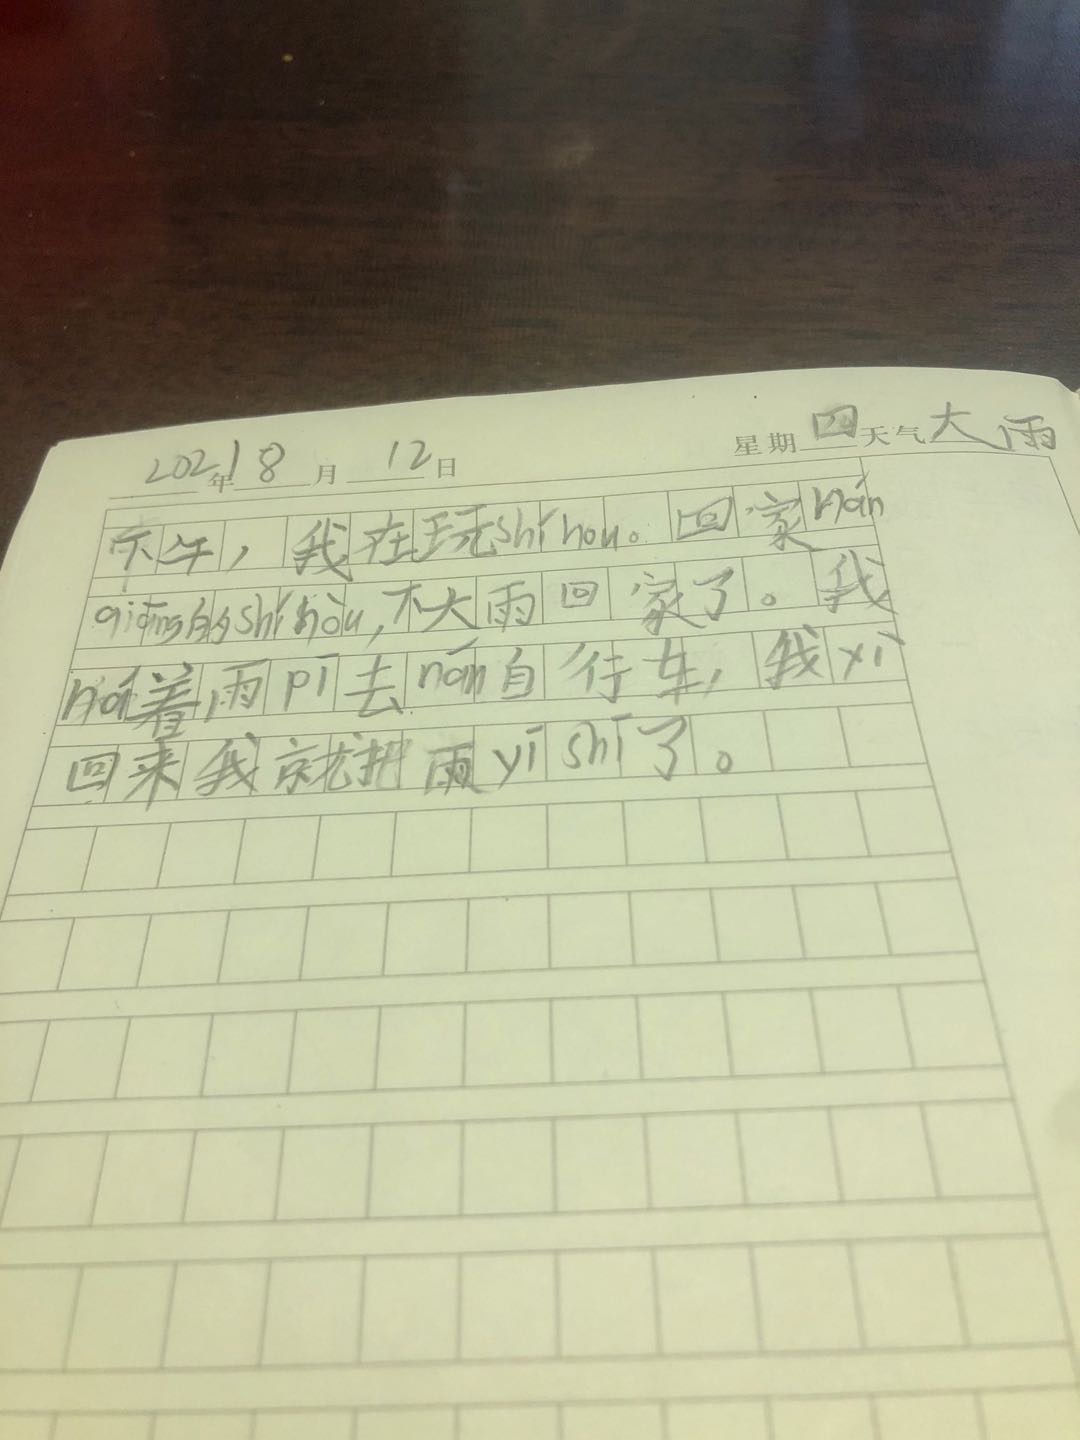 2021年8月12日 星期四天气大雨
下午，我在玩shí hou。回家nán
qiáng的shí hòu，下大雨回家了。我
nái着雨pī去nán自行车，我yì
回来我就把雨yī shī了。